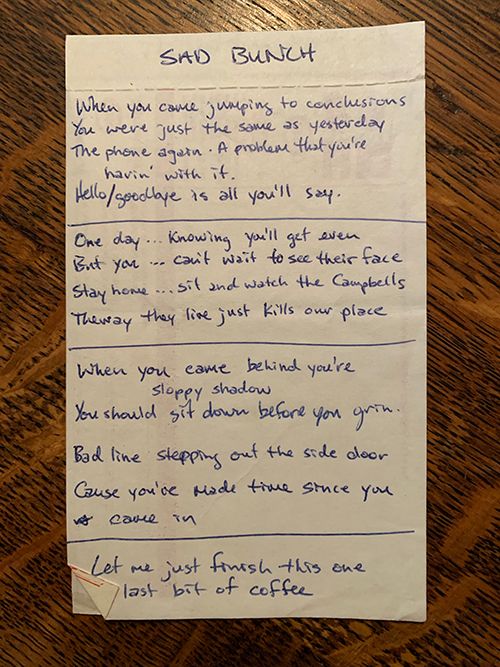 SAD BUNCH
When you came jumping to conclusions
You were just the same as yesterday
The phone again. A problem that you're
havin' with it.
Hello/goodbye is all you'll say.
One day ... Knowing you'll get even
But you ... can't wait to see their face
Stay home ... sit and watch the Campbells
The way they live just kills our place
When you came behind you're
sloppy shadow
You should sit down before you grin.
Bad line stepping out the side door
Cause you've made time since you
came in
Let me just finish this one
last bit of coffee